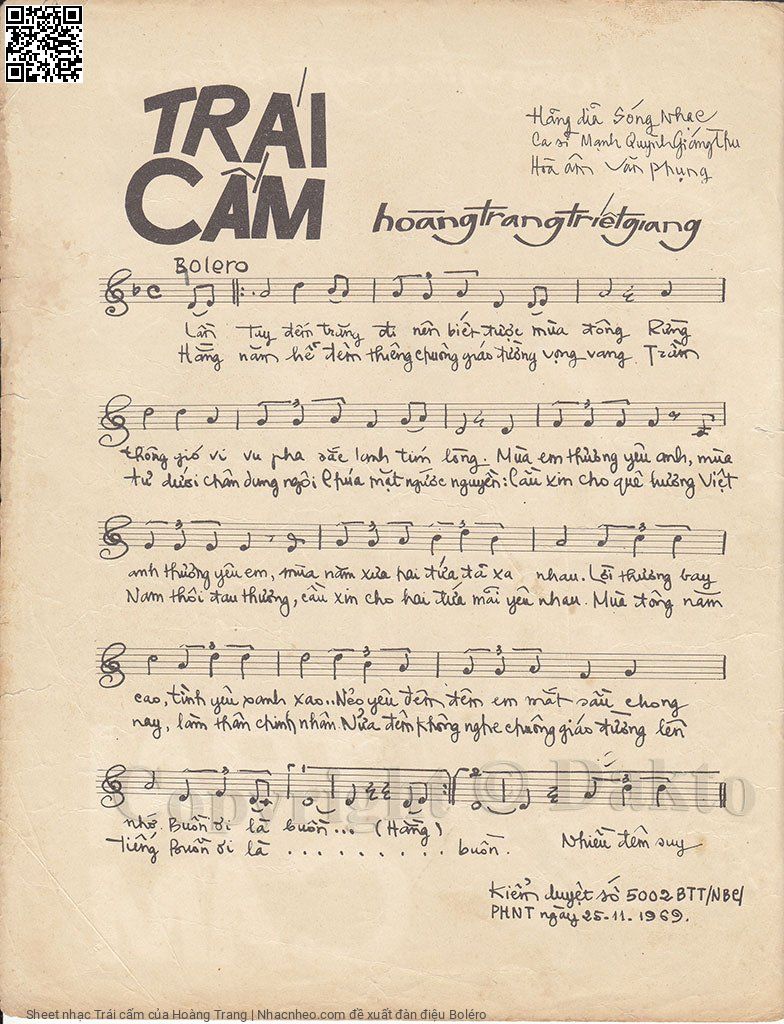 TRÁI
CẤM
Hãng dĩa Sóng Nhạc
Ca sĩ Mạnh Quỳnh Giáng Thu
Hòa âm Văn Phụng
hoàngtrangtriếtgiang
Bolero
Lần Tay đếm trăng đi nên biết được mùa đông Rừng
Hằng năm hễ đêm thiêng chuông giáo đường vọng vang. Trầm
thông gió vi vu pha sắc lạnh tím lòng. Mùa em thương yêu anh, mùa
tư dưới chân dung ngôi Chúa mặt ngước nguyền: Cầu xin cho quê hương Việt
anh thương yêu em, mùa năm xưa hai đứa đã xa nhau. Lời thương bay
Nam thôi đau thương, cầu xin cho hai đứa mãi yêu nhau. Mùa đông năm
cao, tình yêu xanh xao.. Nẻo yêu đêm đêm em mắt sầu chong
nay, làm thân chinh nhân Nửa đêm không nghe chuông giáo đường lên
nhớ. Buồn ơi là buồn... (Hằng)
tiếng Buồn ơi là . . . . . . . . . buồn. Nhiều đêm suy
Copyright © Dakto
Kiểm duyệt số 5002 BTT/NBC/
PHNT ngày 25-11-1969.
Sheet nhạc Trái cấm của Hoàng Trang | Nhacnheo.com đề xuất đàn điệu Boléro